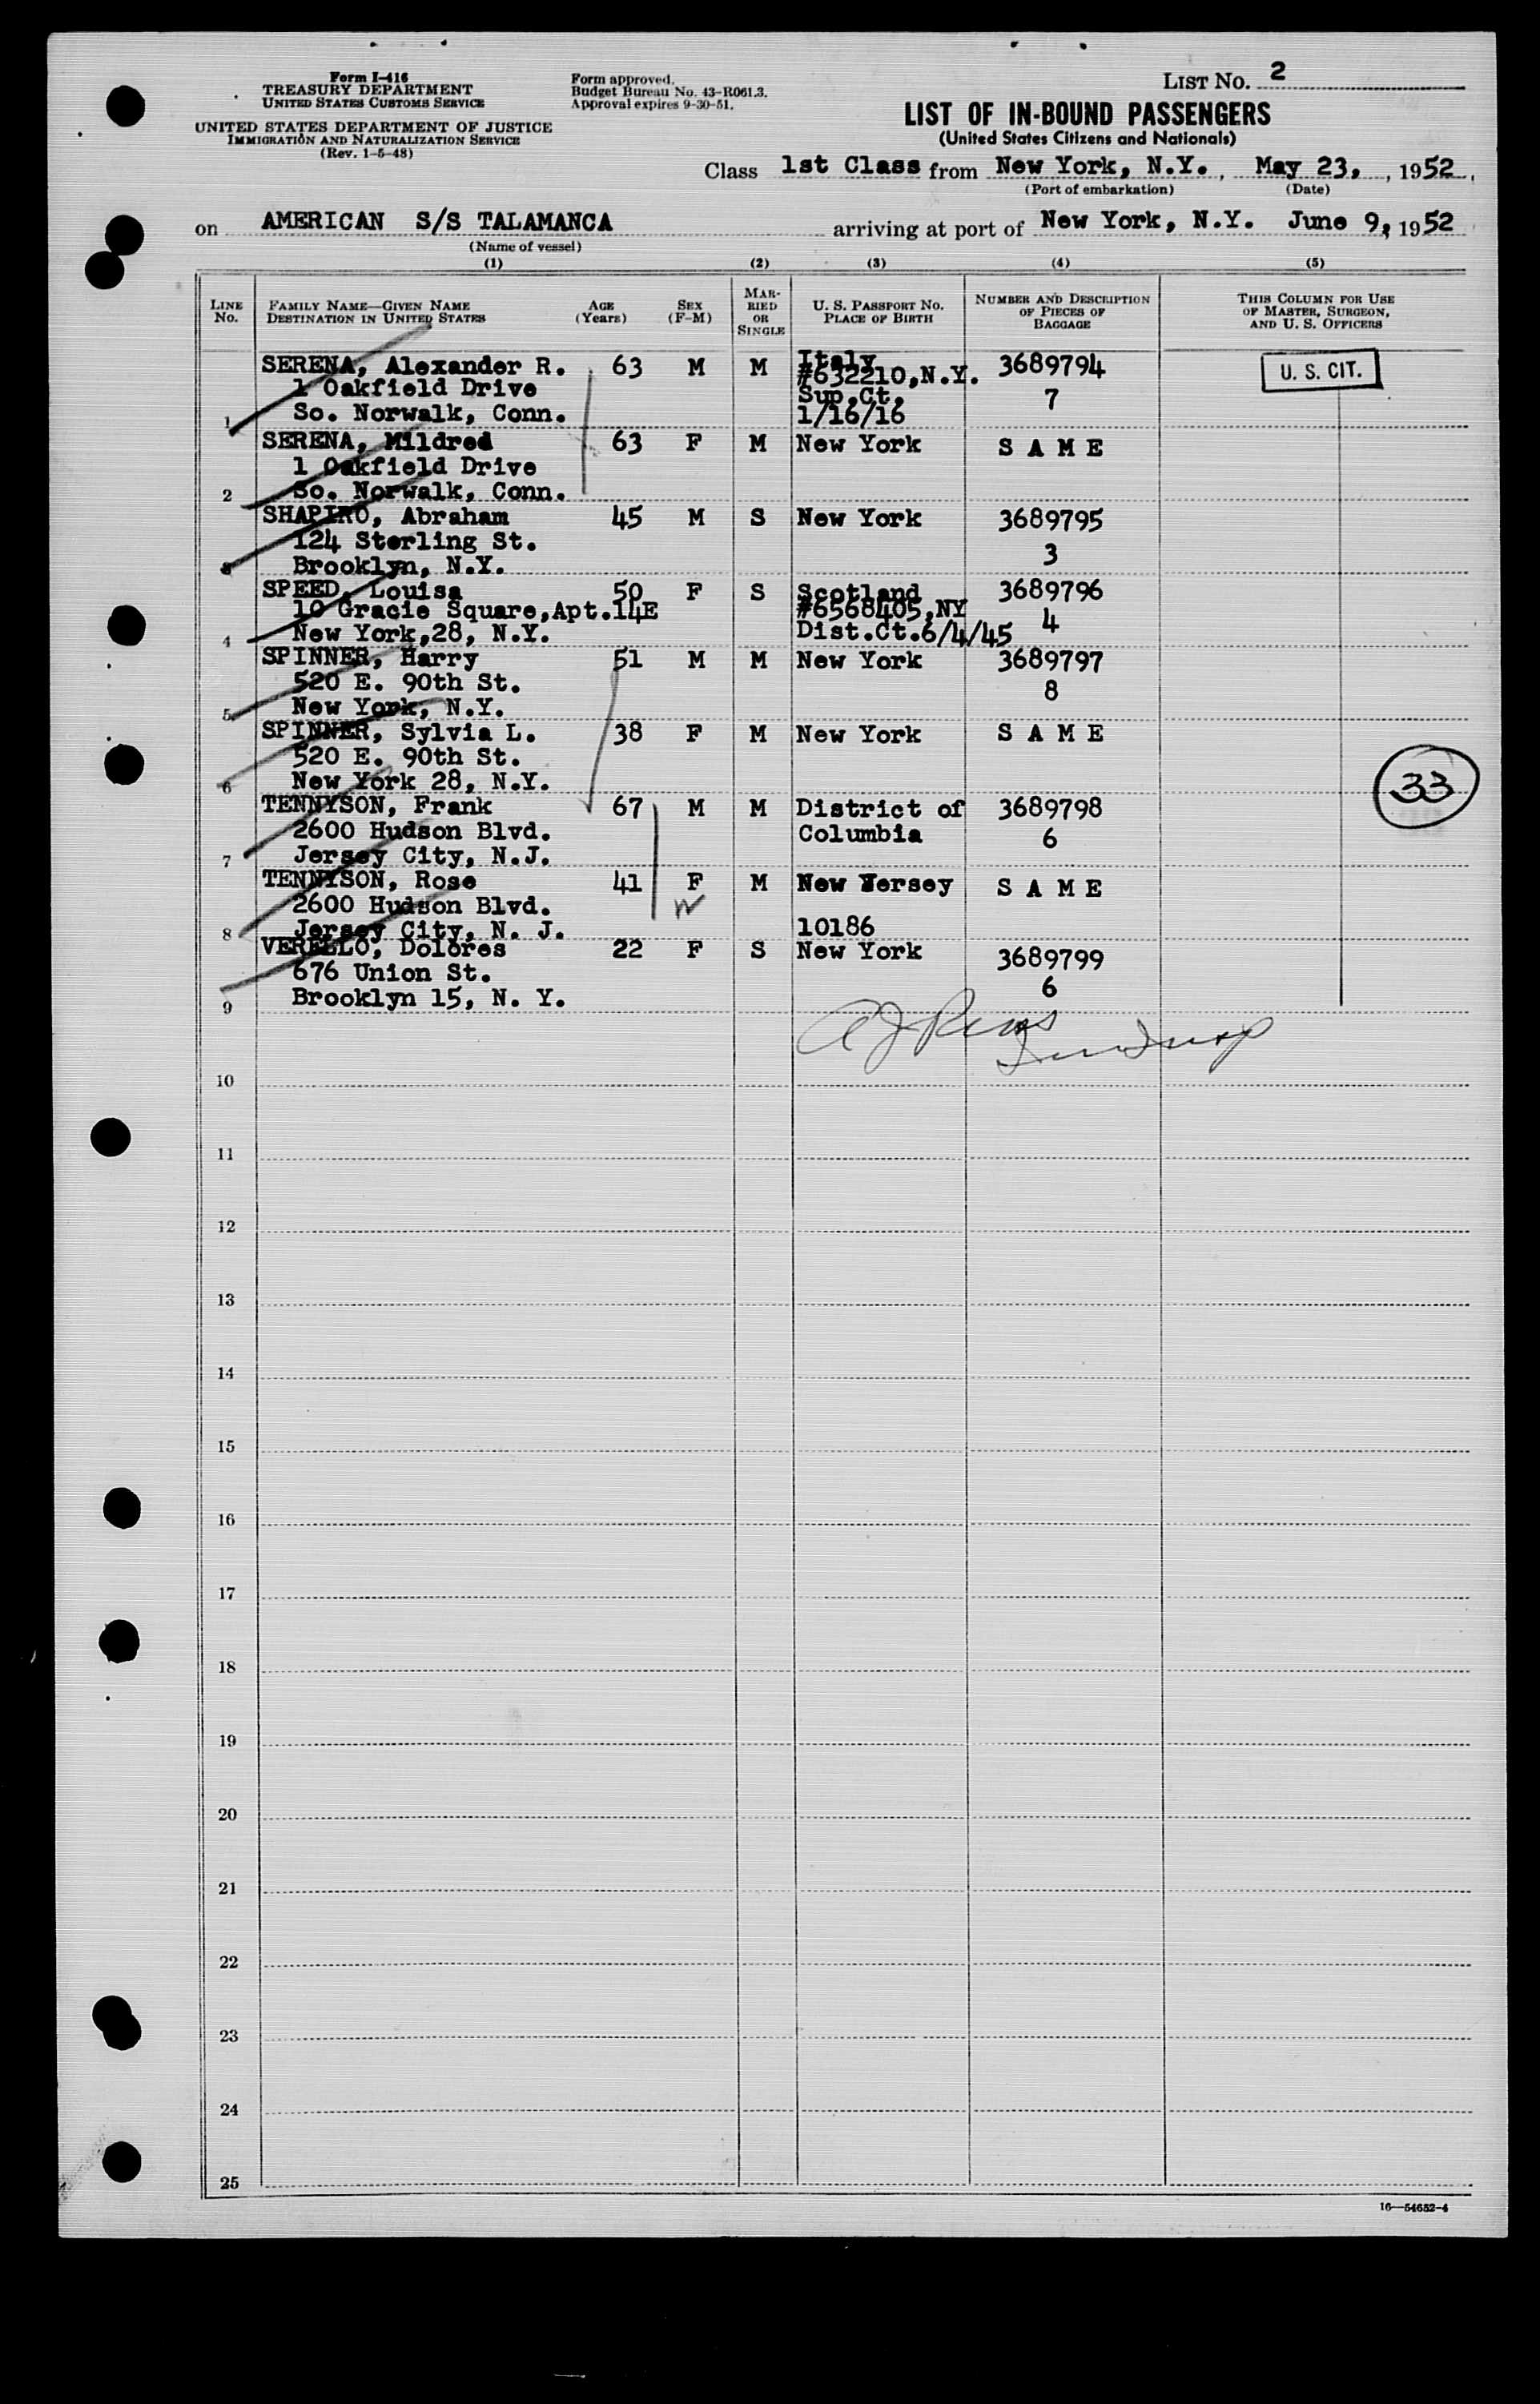 Form I-416
TREASURY DEPARTMENT
UNITED STATES CUSTOMS SERVICE
UNITED STATES DEPARTMENT OF JUSTICE
IMMIGRATION AND NATURALIZATION SERVICE
(Rev. 1-5-48)
Form approved.
Budget Bureau No. 43-R061.3.
Approval expires 9-30-51.
LIST NO. 2
LIST OF IN-BOUND PASSENGERS
(United States Citizens and Nationals)
Class 1st Class from New York, N.Y., May 23, , 1952,
(Port of embarkation) (Date)
on AMERICAN S/S TALAMANCA arriving at port of New York, N.Y. June 9, 1952
(Name of vessel)
(1) (2) (3) (4) (5)
LINE No. FAMILY NAME—GIVEN NAME DESTINATION IN UNITED STATES AGE (Years) SEX (F-M) MARRIED OR SINGLE U. S. PASSPORT NO. PLACE OF BIRTH NUMBER AND DESCRIPTION OF PIECES OF BAGGAGE THIS COLUMN FOR USE OF MASTER, SURGEON, AND U. S. OFFICERS
SERENA, Alexander R. 63 M M Italy 3689794 U. S. CIT.
1 Oakfield Drive #632210,N.Y. 7
So. Norwalk, Conn. Sup.Ct.
1 1/16/16
SERENA, Mildred 63 F M New York S A M E
1 Oakfield Drive
2 So. Norwalk, Conn.
SHAPIRO, Abraham 45 M S New York 3689795
124 Sterling St. 3
3 Brooklyn, N.Y.
SPEED, Louisa 50 F S Scotland 3689796
10 Gracie Square,Apt.14E #6568405,NY 4
4 New York,28, N.Y. Dist.Ct.6/4/45
SPINNER, Harry 51 M M New York 3689797
520 E. 90th St. 8
5 New York, N.Y.
SPINNER, Sylvia L. 38 F M New York S A M E
520 E. 90th St.
6 New York 28, N.Y.
33
TENNYSON, Frank 67 M M District of 3689798
2600 Hudson Blvd. Columbia 6
7 Jersey City, N.J.
TENNYSON, Rose 41 F M New Jersey S A M E
2600 Hudson Blvd.
8 Jersey City, N. J. 10186
VERELLO, Dolores 22 F S New York 3689799
676 Union St. 6
9 Brooklyn 15, N. Y.
10
11
12
13
14
15
16
17
18
19
20
21
22
23
24
25
16—54652-4